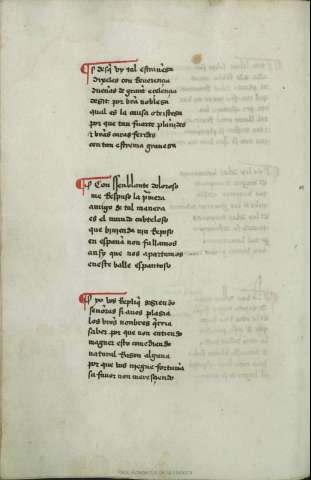 desq vy tal estrañesa
dixeles con Reuerença
dueñas de grant exelençia
desit por vra noblesa
qual es la causa o tristesa
por que tan fuerte plañides
& vras caras ferides
con tan estrema graueza
Con senblante doloroso
me Respuso la primera
amigo de tal manera
es el mundo cubteloso
que biuienda nin Reposo
en españa non fallamos
ansy que nos apartamos
eneste balle espantoso
yo vos Replico disiendo
señoras si auos plasia
los vros nonbres querria
saber por que non entiendo
magner esto comediendo
natural Rason alguna
por que vos niegue fortuna
su fauor non meresçiendo